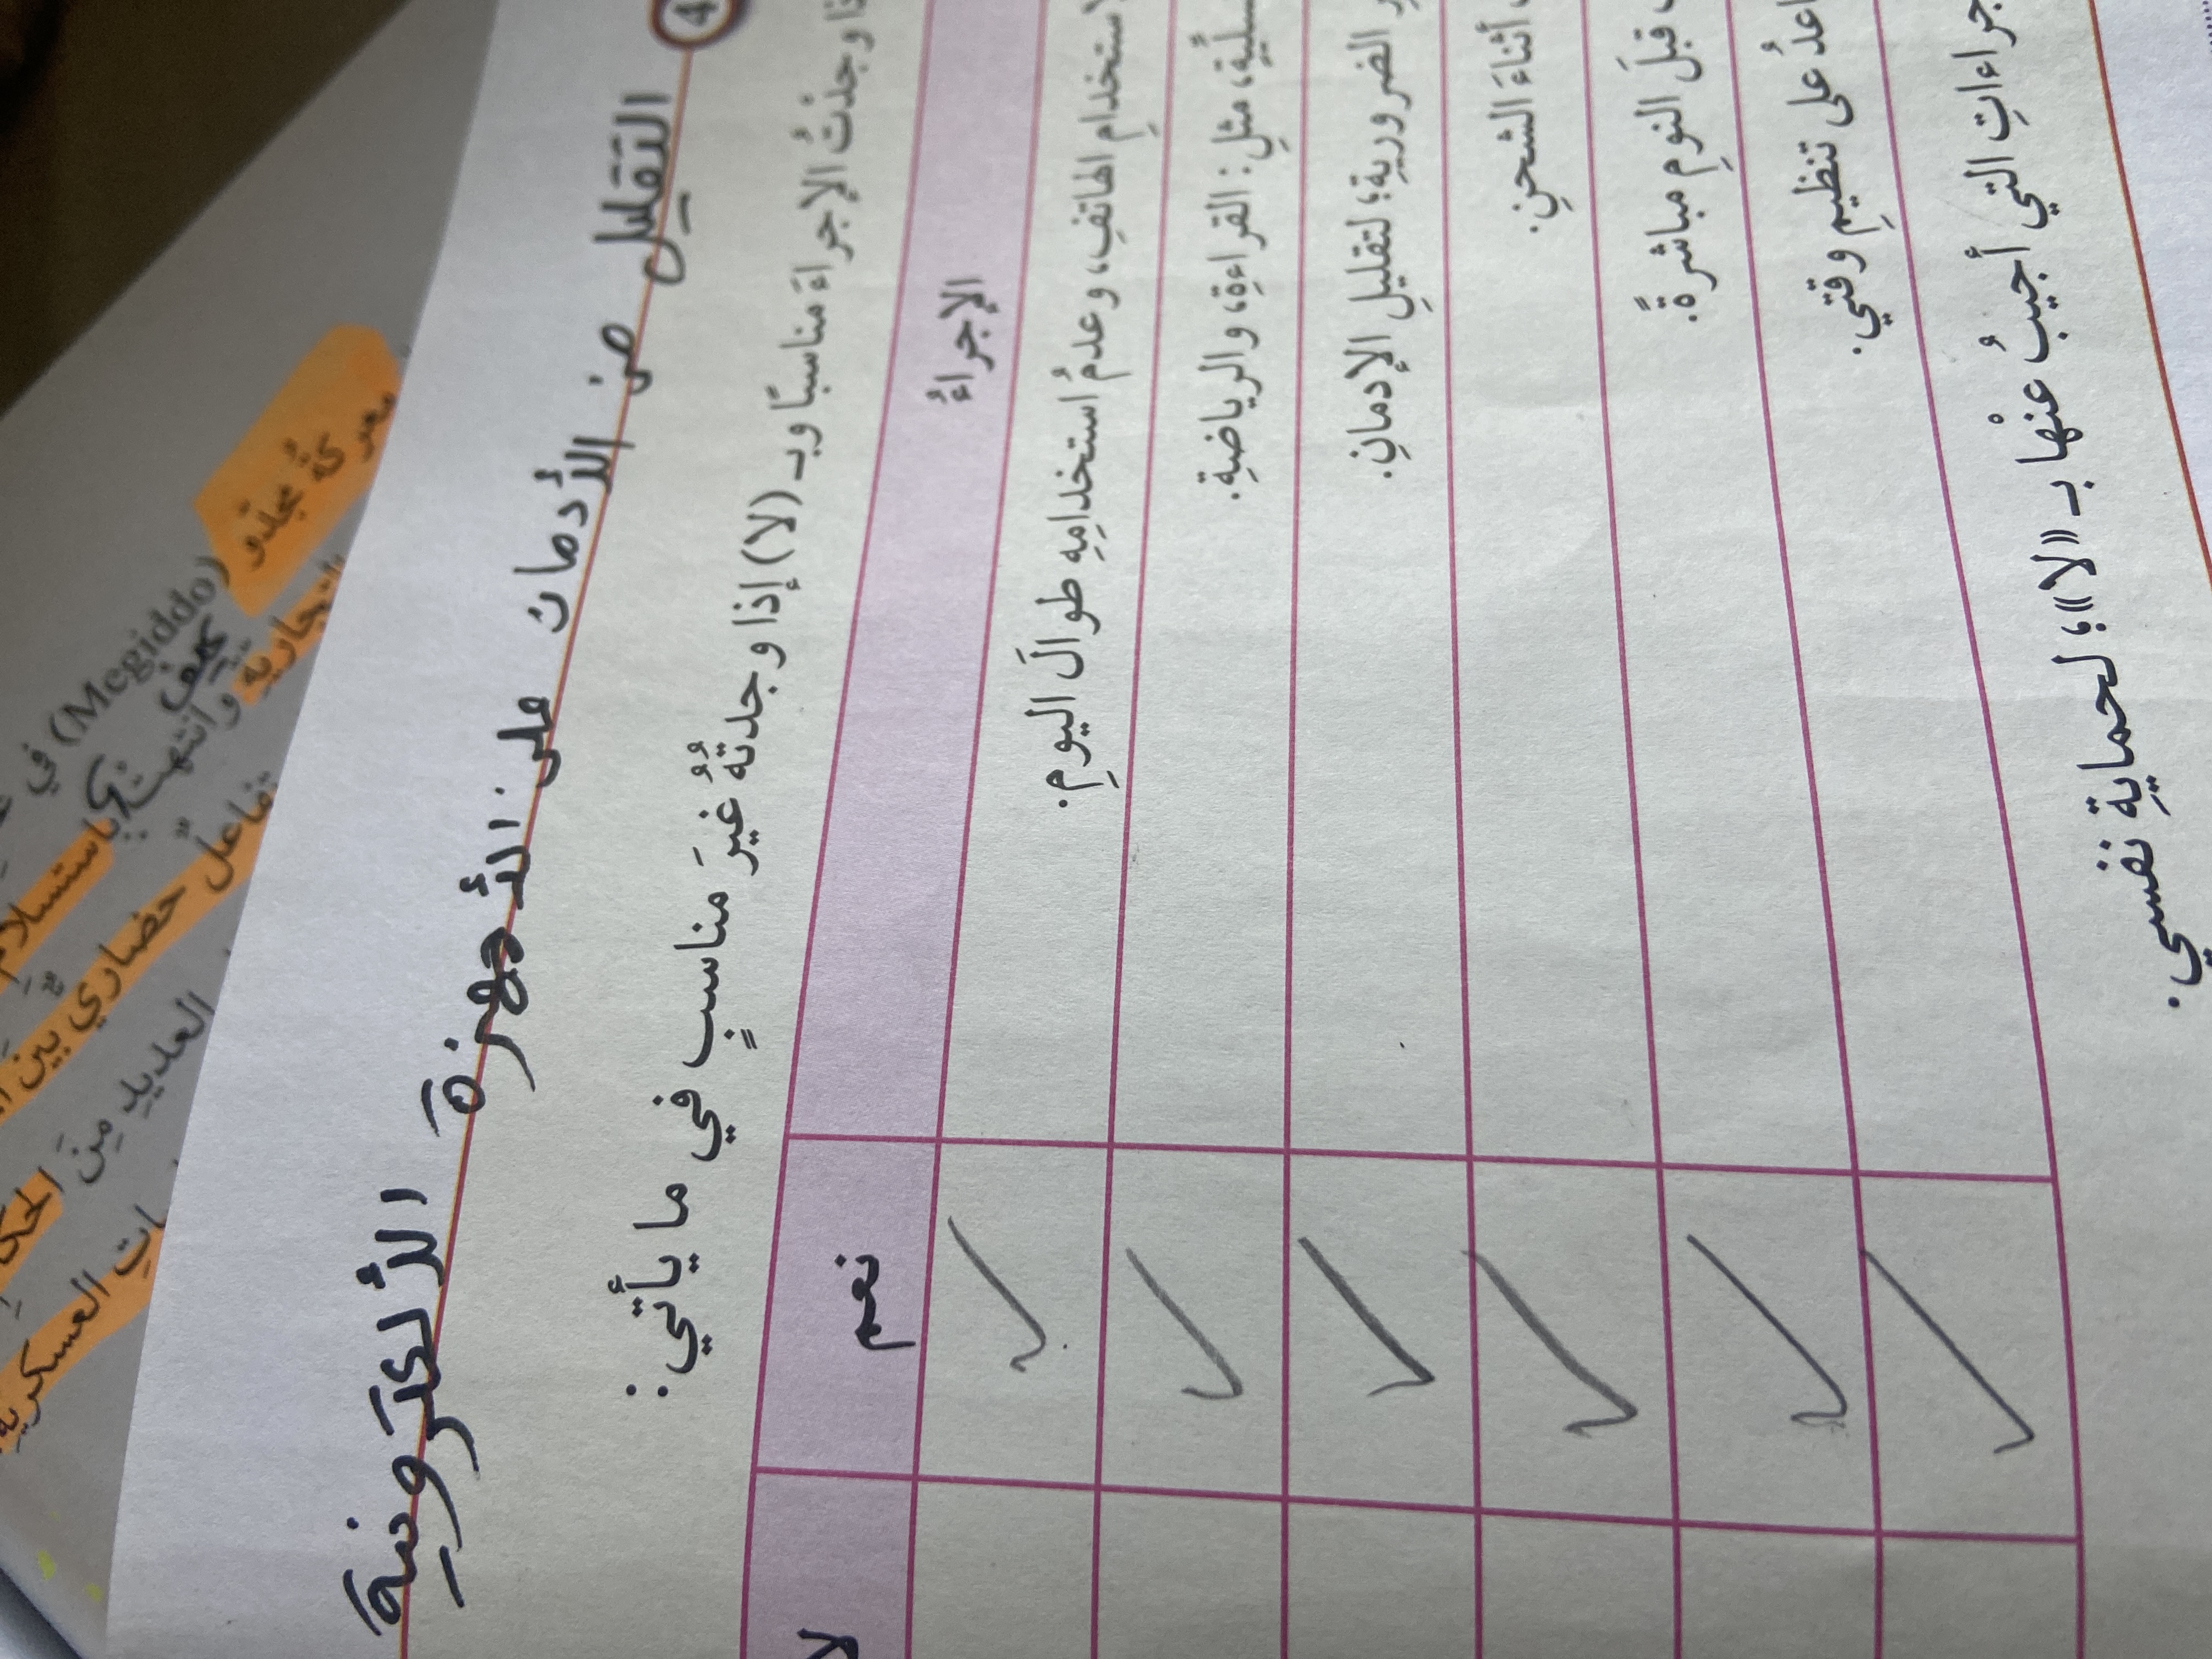 4
التقليل من الأدمان على الأجهزة الألكترونية
وجدْتُ الإجراءَ مناسبًا وبـ (لا) إذا وجدتهُ غيرَ مناسبٍ في ما يأتي:
الإجراءُ
نعم
لا
استخدامِ الهاتفِ، وعدمُ استخدامِهِ طوالَ اليومِ.
مثلِ: القراءةِ، والرياضةِ.
الضروريةِ؛ لتقليلِ الإدمانِ.
أثناءَ الشحنِ.
قبلَ النومِ مباشرةً.
على تنظيمِ وقتي.
التي أجيبُ عنْها بـ «لا»؛ لحمايةِ نفسي.
مجدّو (Megiddo) في
كيف
وانتهتْ باستسلامِ
تفاعلٌ حضاريٌّ بينَ
العديدِ مِنَ
العسكريةِ